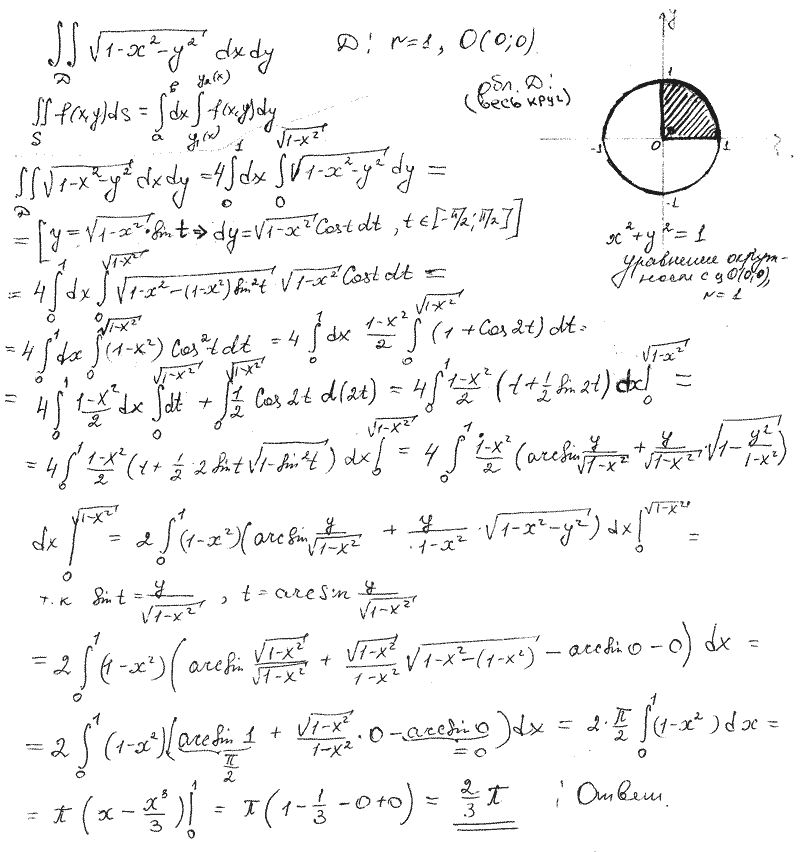 ∬_D √(1-x²-y²) dxdy     D: r=1, O(0;0)
∬_S f(x,y)ds = ∫_a^b dx ∫_{y₁(x)}^{y₂(x)} f(x,y)dy
обл. D:
(весь круг)
y
1
-1
0
1
-1
x²+y²=1
уравнение окруж-
ности с ц O(0;0),
r=1
∬_D √(1-x²-y²) dxdy = 4∫_0^1 dx ∫_0^{√(1-x²)} √(1-x²-y²) dy =
= [y=√(1-x²)·Sin t → dy=√(1-x²) Cost dt, t∈[-π/2; π/2]]
= 4∫_0^1 dx ∫_0^{√(1-x²)} √(1-x²-(1-x²)Sin²t) √(1-x²) Cost dt =
= 4∫_0^1 dx ∫_0^{√(1-x²)} (1-x²) Cos²t dt = 4∫_0^1 dx (1-x²)/2 ∫_0^{√(1-x²)} (1+Cos2t) dt =
= 4∫_0^1 (1-x²)/2 dx ∫_0^{√(1-x²)} dt + ∫_0^{√(1-x²)} 1/2 Cos 2t d(2t) = 4∫_0^1 (1-x²)/2 (t+1/2 Sin 2t) dx |_0^{√(1-x²)} =
= 4∫_0^1 (1-x²)/2 (t+1/2·2 Sin t √(1-Sin²t)) dx |_0^{√(1-x²)} = 4∫_0^1 (1-x²)/2 (arcSin y/√(1-x²) + y/√(1-x²)·√(1-y²/(1-x²)))
dx |_0^{√(1-x²)} = 2∫_0^1 (1-x²)(arcSin y/√(1-x²) + y/(1-x²)·√(1-x²-y²)) dx |_0^{√(1-x²)} =
т.к Sin t = y/√(1-x²), t = arcSin y/√(1-x²)
= 2∫_0^1 (1-x²)(arcSin √(1-x²)/√(1-x²) + √(1-x²)/(1-x²) √(1-x²-(1-x²)) - arcSin 0 - 0) dx =
= 2∫_0^1 (1-x²)(arcSin 1 + √(1-x²)/(1-x²)·0 - arcSin 0) dx = 2·π/2 ∫_0^1 (1-x²) dx =
π/2   =0
= π(x - x³/3)|_0^1 = π(1-1/3-0+0) = 2/3 π : Ответ.